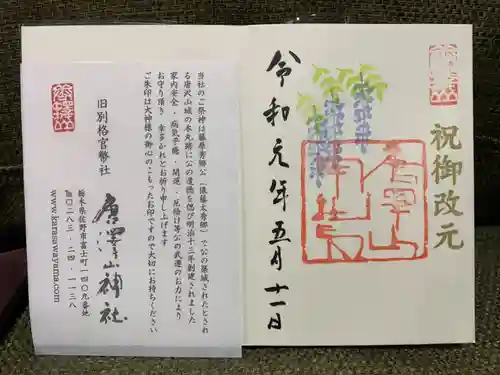 祝御改元
令和元年五月十一日
当社のご祭神は藤原秀郷公（俵藤太秀郷）で公の築城されたとされ
る唐沢山城の本丸跡に公の遺徳を偲び明治十三年創建されました
家内安全・病気平癒・開運・厄除け等公の武運のお力により
お守り頂き　幸多かれとお祈り申し上げます
ご朱印は大神様の御心のこもったお印ですので大切にお持ちください
旧別格官幣社
唐澤山神社
栃木県佐野市富士町一四〇九番地
℡〇二八三-二四-一一三八
www.karasawayama.com